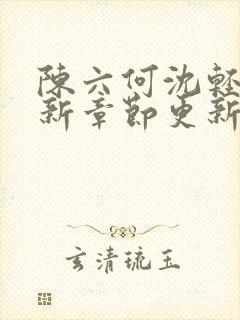 陳六何沈輕
新章節更新
玄清琉玉